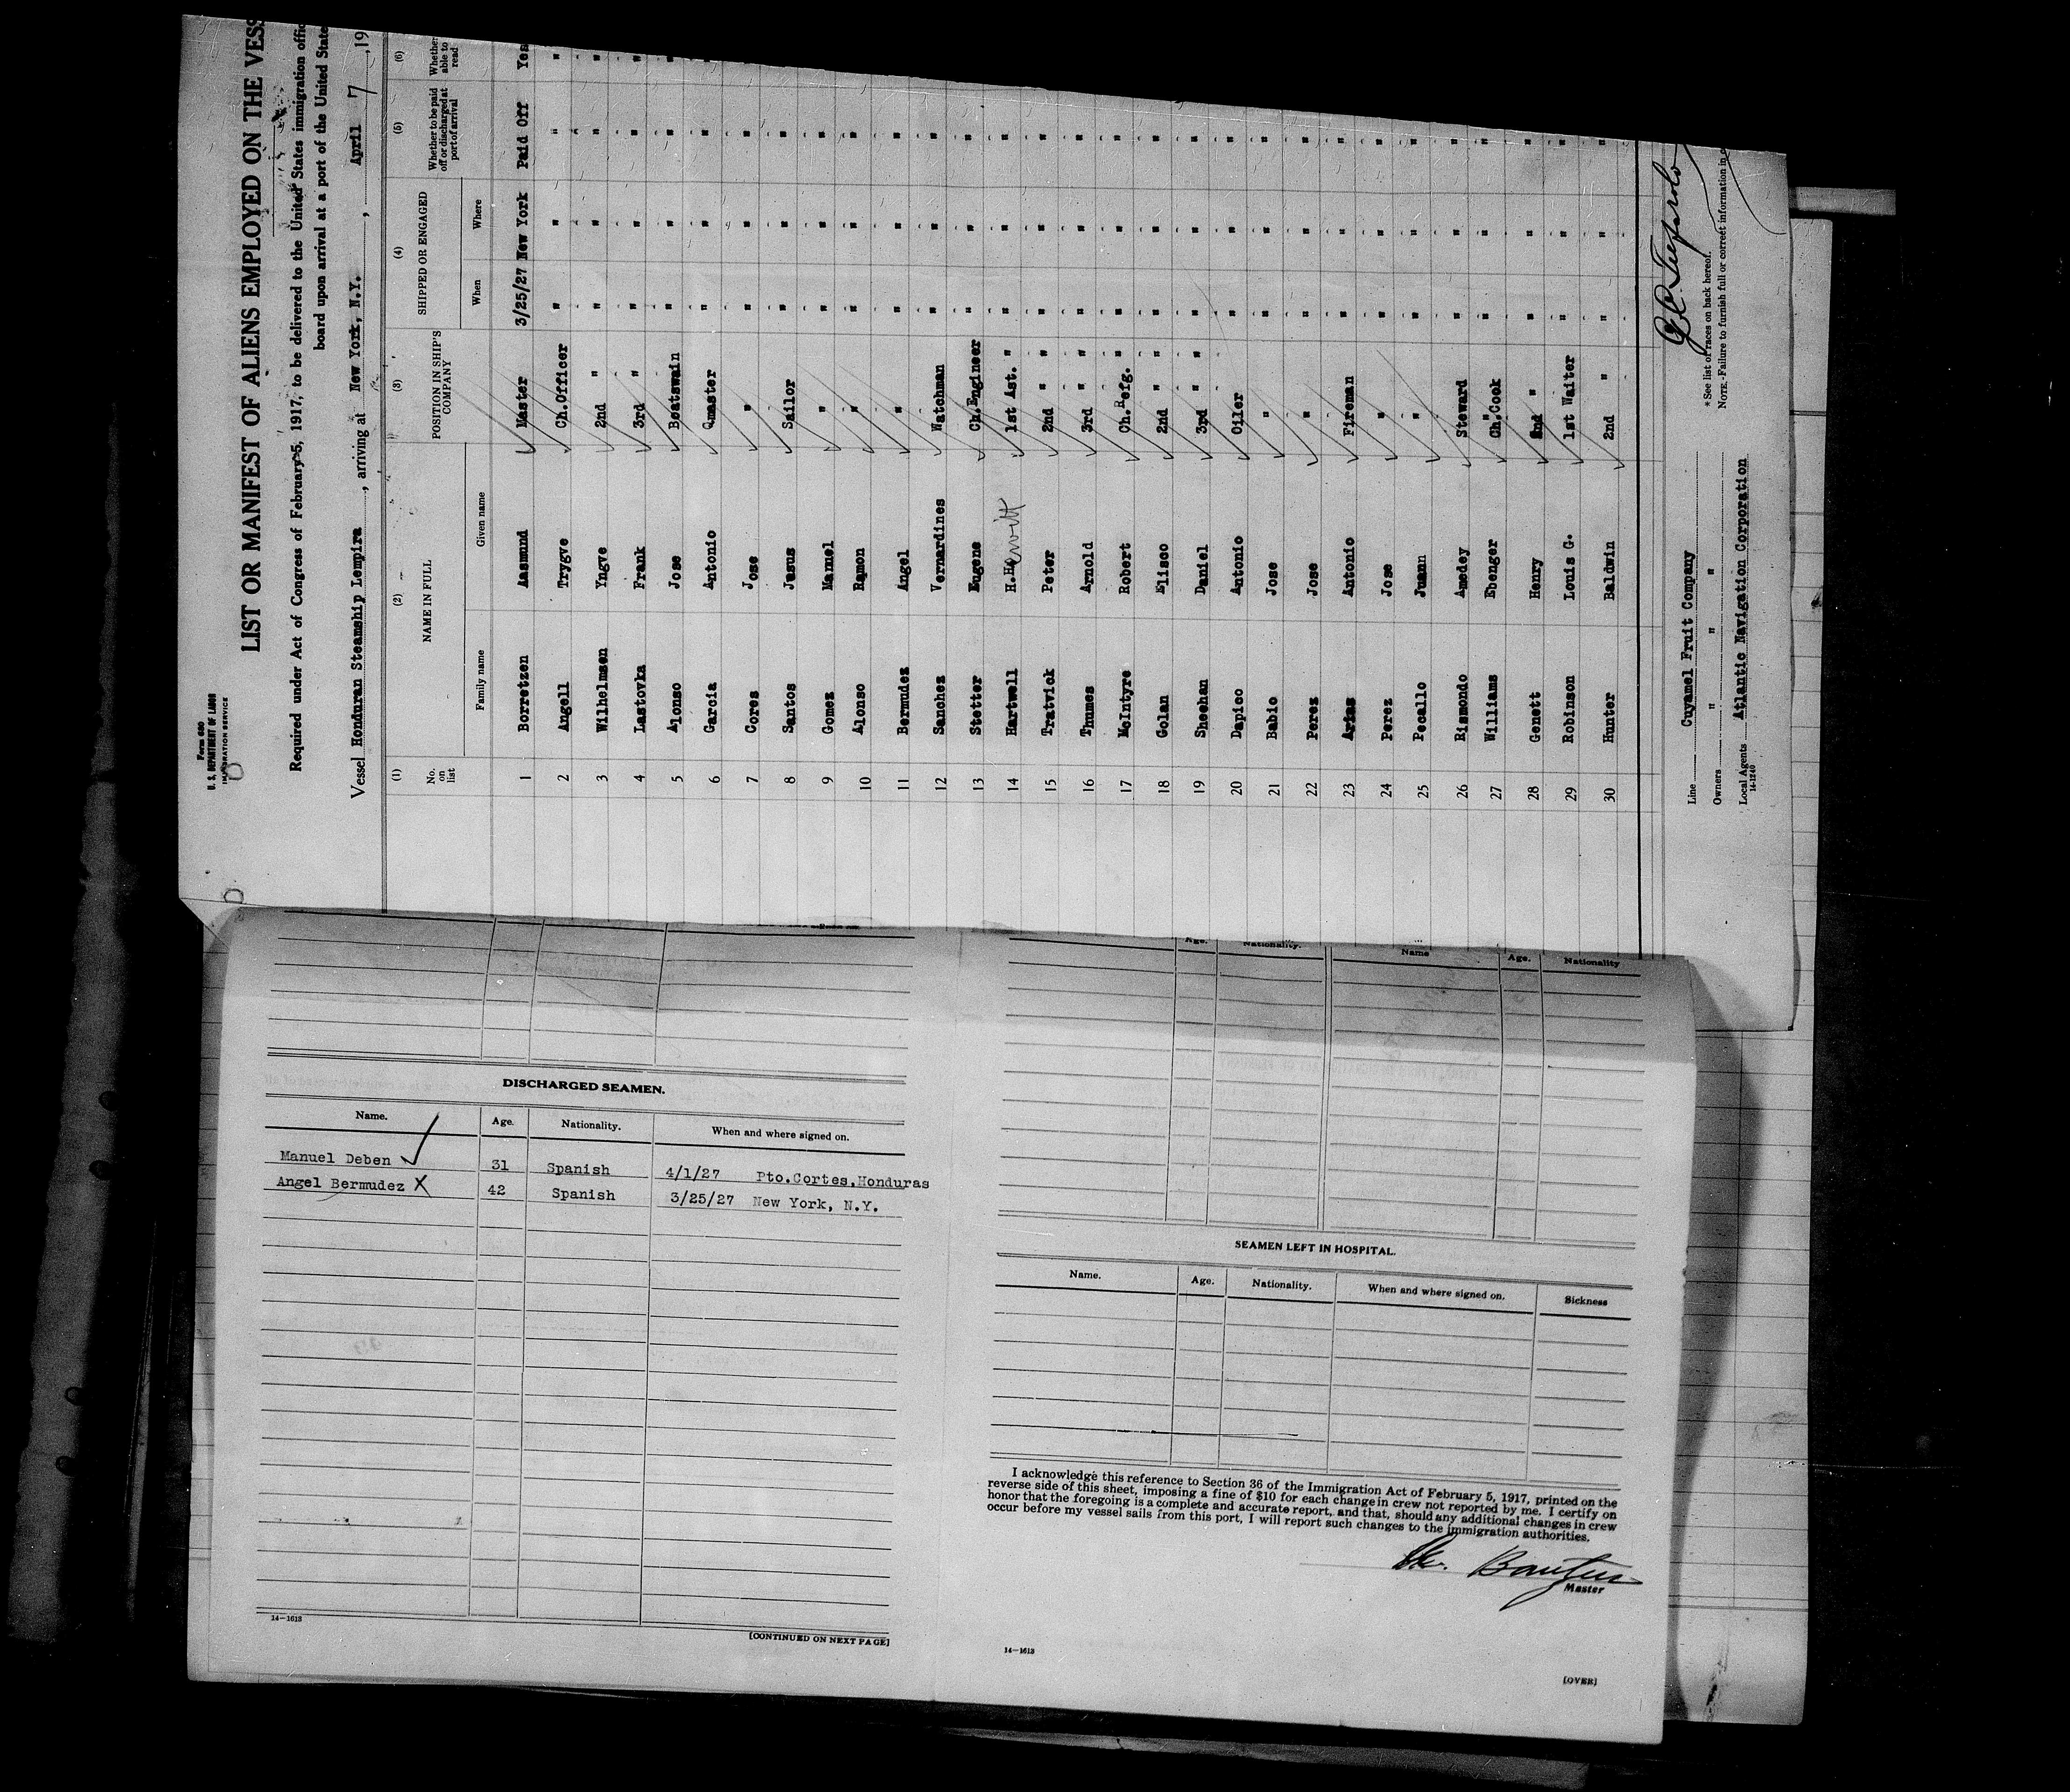 Form 680
U. S. DEPARTMENT OF LABOR
IMMIGRATION SERVICE
LIST OR MANIFEST OF ALIENS EMPLOYED ON THE VESS
Required under Act of Congress of February 5, 1917, to be delivered to the United States immigration offic
board upon arrival at a port of the United State
Vessel Honduran Steamship Lempira , arriving at New York, N.Y. , April 7 , 19
(1) (2) (3) (4) (5) (6)
No. on list NAME IN FULL POSITION IN SHIP'S COMPANY SHIPPED OR ENGAGED Whether to be paid off or discharged at port of arrival Whether able to read
Family name Given name When Where
1 Borretzen Aasmund Master 3/25/27 New York Paid Off Yes
2 Angell Trygve Ch.Officer " " " "
3 Wilhelmsen Yngve 2nd " " " " "
4 Lastovka Frank 3rd " " " " "
5 Alonso Jose Boatswain " " " "
6 Garcia Antonio Qmaster " " "
7 Cores Jose " " " "
8 Santos Jesus Sailor " " "
9 Gomez Manuel " " " "
10 Alonso Ramon " " " "
11 Bermudez Angel " " " "
12 Sanchez Vernardines Watchman " " "
13 Stetter Eugene Ch.Engineer " " "
14 Hartwell H. Hewitt 1st Ast. " " " "
15 Tratvick Peter 2nd " " " " "
16 Thumes Arnold 3rd " " " " "
17 McIntyre Robert Ch.Refg. " " " "
18 Golan Elisco 2nd " " " " "
19 Sheehan Daniel 3rd " " " " "
20 Dapico Antonio Oiler " " "
21 Babio Jose " " " "
22 Perez Jose " " " "
23 Arias Antonio Fireman " " "
24 Perez Jose " " " "
25 Pecallo Juann " " " "
26 Rismondo Amedey Steward " " "
27 Williams Ebenger Ch.Cook " " "
28 Genett Henry 2nd " " " "
29 Robinson Louis G. 1st Waiter " " "
30 Hunter Baldwin 2nd " " " "
Line Cuyamel Fruit Company
Owners " " "
Local Agents Atlantic Navigation Corporation
14-1240
* See list of races on back hereof.
NOTE.-Failure to furnish full or correct information in
DISCHARGED SEAMEN.
Name. Age. Nationality. When and where signed on.
Manuel Deben 31 Spanish 4/1/27 Pto.Cortes,Honduras
Angel Bermudez X 42 Spanish 3/25/27 New York, N.Y.
14—1613
[CONTINUED ON NEXT PAGE]
Age. Nationality. Name Age. Nationality
SEAMEN LEFT IN HOSPITAL.
Name. Age. Nationality. When and where signed on. Sickness
I acknowledge this reference to Section 36 of the Immigration Act of February 5, 1917, printed on the
reverse side of this sheet, imposing a fine of $10 for each change in crew not reported by me. I certify on
honor that the foregoing is a complete and accurate report, and that, should any additional changes in crew
occur before my vessel sails from this port, I will report such changes to the immigration authorities.
Master
14—1613
[OVER]